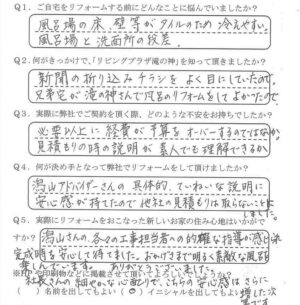 Q1. ご自宅をリフォームする前にどんなことに悩んでいましたか?
風呂場の床、壁等がタイルのため冷えやすい。
風呂場と洗面所の段差。
Q2. 何がきっかけで、「リビングプラザ滝の神」を知って頂きましたか?
新聞の折り込みチラシをよく目にしていたのと、
兄弟宅が滝の神さんで風呂のリフォームをしてよかったので。
Q3. 実際に弊社でご契約を頂く際、どのような不安をお持ちでしたか?
必要以上に経費が予算をオーバーするのではないか。
見積もりの時の説明が素人でも理解できるか
Q4. 何が決め手となって弊社でリフォームをして頂けましたか?
潟山アドバイザーさんの具体的、ていねいな説明に
安心感が持てたので他社の見積もりは取らないことに
しました。
Q5. 実際にリフォームをおこなった新しいお家の住み心地はいかがで
すか?
潟山さんの、各々の工事担当者への的確な指導が感じ
完成時を安心して待てました。おかげさまで明るく素敵な風呂を
ありがとうございました。
※HPや印刷物などに掲載させて頂いてよろしいでしょうか?
社長さんの細やかな心配りで、こちらの安心感はさらに
増して
( )名前を出してもよい (○)イニシャルを出してもよい